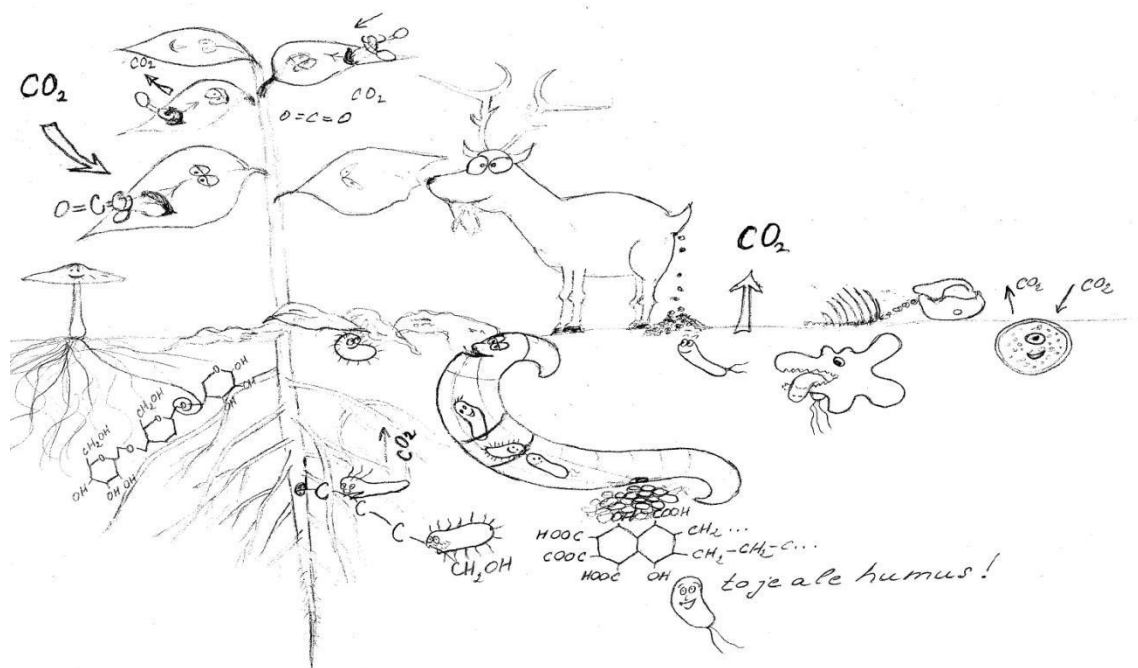 CO₂
CO₂
CO₂
O=C=O
O=C=
CO₂
CO₂
CO₂
OH
OH
OH
CH₂OH
O
O
O
O
O
CH₂OH
OH
OH
OH
CO₂
C
C
C
CH₂OH
OH
COOH
HOOC
CH₂...
COOC
CH₂-CH₂-C...
HOOC
OH
to je ale humus!